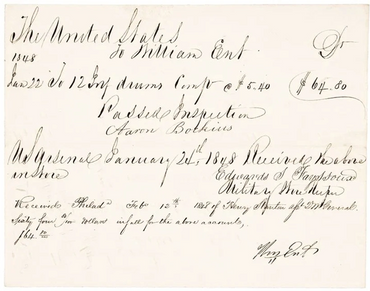 The United States
To William Ent. Dr
1848
Jan 22 To 12 Inf drums Compt @ $5.40 $64.80
Passed Inspection
Aaron Bockius
US Arsenal January 24th, 1848 Received the above
in store
Edwards S
Military Store
Received Philada Feb 12th 1848 of Henry
Sixty four Dollars in full for the above amount,
$64.
Wm Ent